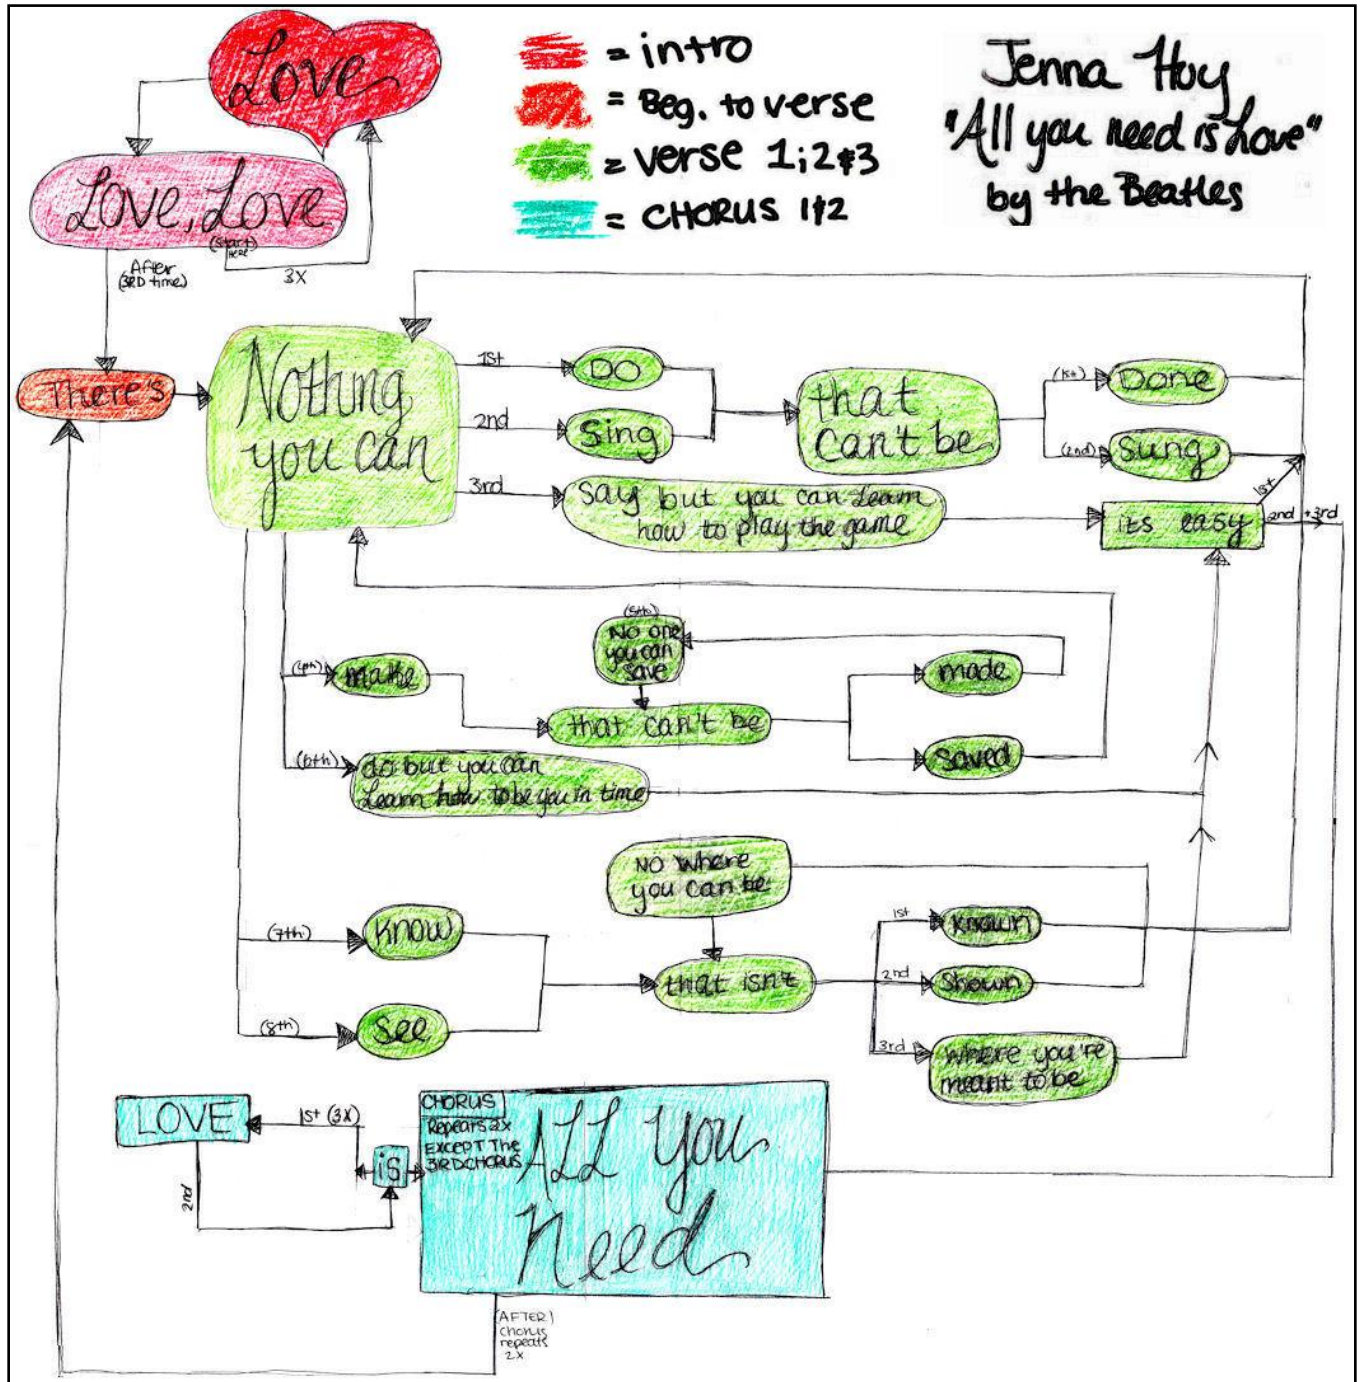 Love
= intro
= Beg. to verse
= verse 1;2&3
= CHORUS 1&2
Jenna Huy
"All you need is Love"
by the Beatles
Love, Love
(start
Here)
3x
After
(3RD time)
There's
Nothing
you can
1st
DO
2nd
Sing
3rd
say but you can Learn
how to play the game
that
can't be
(1st)
Done
(2nd)
Sung
its easy
1st
2nd + 3rd
(4th)
make
(5th)
No one
you can
save
that can't be
made
saved
(6th)
do but you can
Learn how to be you in time
No where
you can be
(7th)
Know
(8th)
See
that isn't
1st
Known
2nd
Shown
3rd
where you're
meant to be
LOVE
1st (3x)
2nd
is
CHORUS
Repeats 2x
EXCEPT The
3RD CHORUS
ALL You
Need
(AFTER)
chorus
repeats
2x